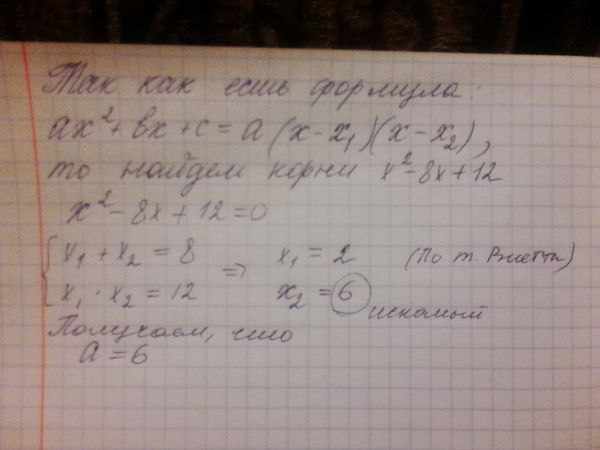 Так как есть формула:
ax²+bx+c=a(x-x₁)(x-x₂),
то найдем корни x²-8x+12
x²-8x+12=0
{ x₁+x₂=8 => x₁=2 (По т. Виетта)
x₁·x₂=12 x₂=6 искомый
Получаем, что
a=6